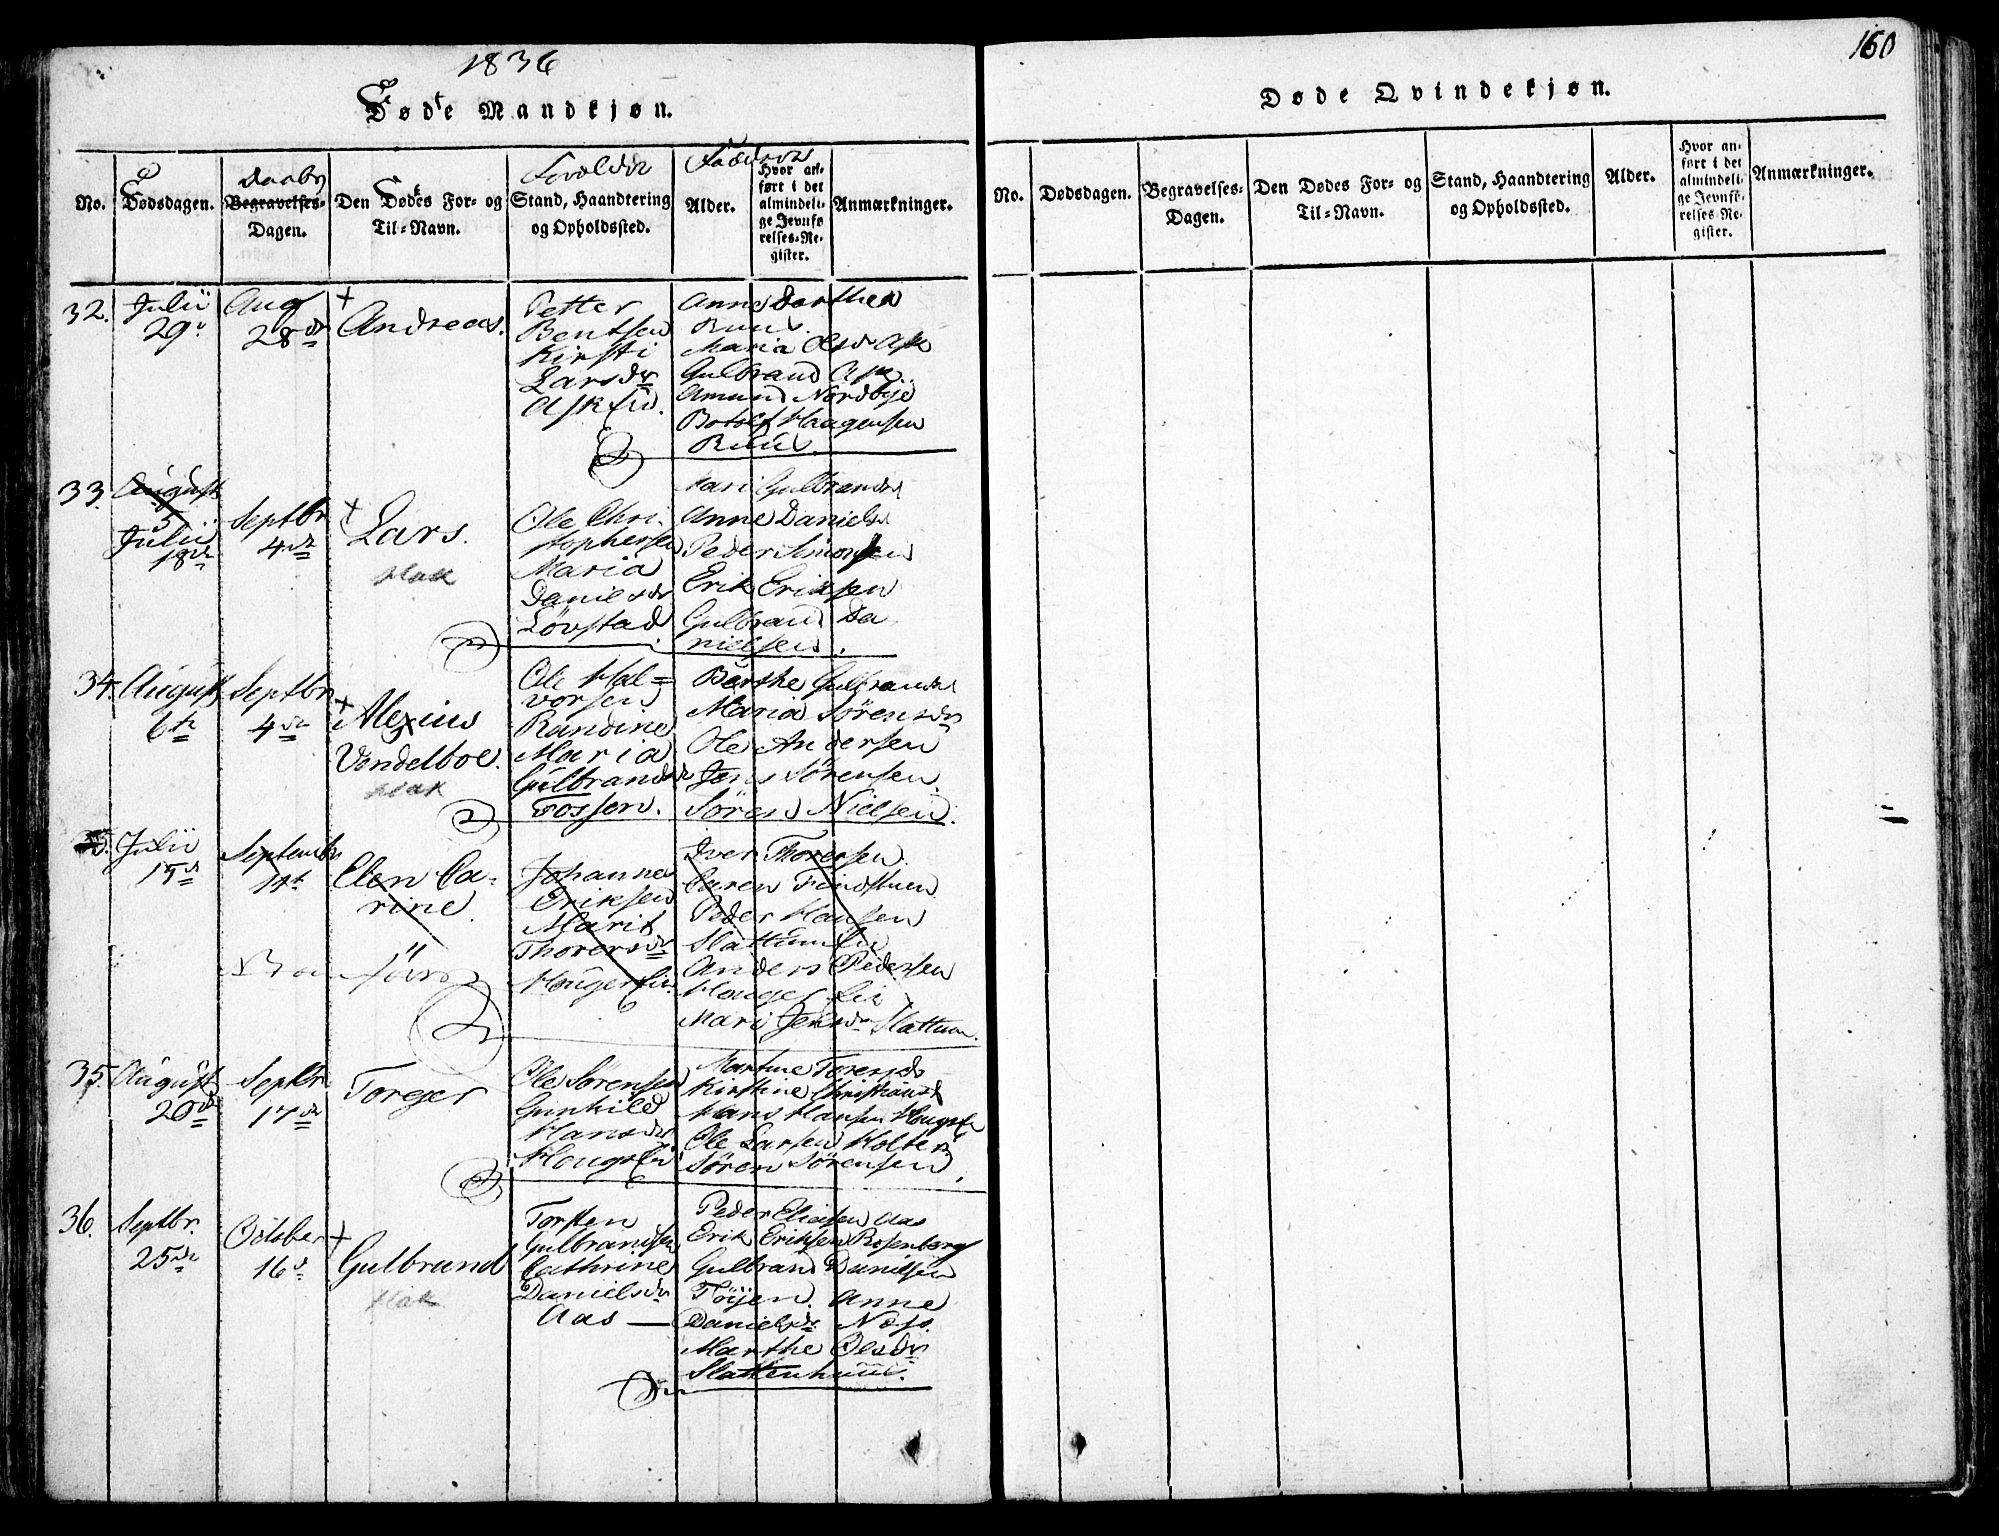 1836
Føde Mandkjøn.
Forældre
Faddere
Daabs
No.
Fødsdagen.
Begravelses-
Dagen.
Den Fødes For- og
Til-Navn.
Stand, Haandtering
og Opholdssted.
Alder.
Hvor an-
ført i det
almindeli-
ge Jevnfø-
relses-Re-
gister.
Anmærkninger.
32.
Julii
29
Aug
28de
+
Andreas.
Petter
Bentsen
Kirsti
Larsdr
Askeiə.
Anne Dorthea
Ruud
Maria Olsdr Ask
Gulbrand Ask
Amund Nordbye
Botolf Haagensen
Ruud.
33.
August
5
Julii
18de
Septbr
4de
+
Lars.
Ole Chri-
stophersen
Maria
Danielsdr
Løvstad.
Kari Gulbrandsd
Anne Danielsd
Peder Simonsen
Erik Eriksen
Gulbrand Da
nielsen.
34.
August
6te
Septbr
4de
+
Alexius
Vendelboe.
Ole Hal=
vorsen
Randine
Maria
Gulbrandsdr
Fossen.
Berthe Gulbrandsd
Maria Sørensdr
Ole Andersen
Jens Sørensen.
Søren Nielsen.
Julii
15de
Septembr
11te
Elen Ca-
rine.
Johannes
Eriksen
Marit
Thorersdr
Hougerein
Iver Thorersen
Caren Findstuen
Peder Hansen
Slattum
Anders Pedersen
Houger
Mari Jensdr Slattum.
35.
August
20de
Septbr
17de
Toreger
Ole Sørensen
Gunhild
Hansdr
Hougs
Martine Toresdr
Kirstine Christiansd
Hans Hansen Hougs
Ole Larsen Holter
Søren Sørensen.
36.
Septbr.
25de
October
16de
+
Gulbrand
Torsten
Gulbrandsen
Cathrine
Danielsdr
Aas —
Peder Eliasen Aas
Erik Eriksen Rosenberg
Gulbrand Danielsen
Tøijen. Anne
Danielsdr Næss.
Marthe Olsdr
Slattenhuus.
160
Døde Qvindekjøn.
No.
Dødsdagen.
Begravelses-
Dagen.
Den Dødes For- og
Til-Navn.
Stand, Haandtering
og Opholdssted.
Alder.
Hvor an-
ført i det
almindeli-
ge Jevnfø-
relses-Re-
gister.
Anmærkninger.